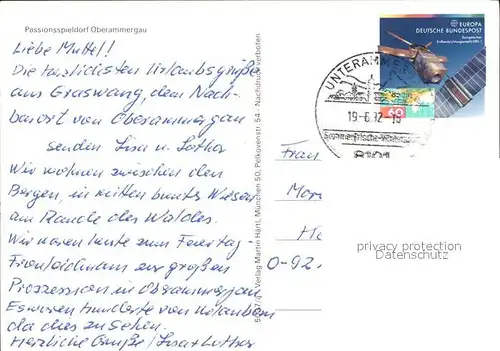 Passionsspieldorf Oberammergau
Liebe Muttel!
Die herzlichsten Urlaubsgrüße
aus Graswang, dem Nach-
barort von Oberammergau
senden Lisa u. Lothar
Wir wohnen zwischen den
Bergen, inmitten bunter Wiesen
am Rande des Waldes.
Wir waren heute zum Feiertag-
Fronleichnam zur großen
Prozession in Oberammergau
Es waren Hunderte von Urlaubern
da dies zu sehen.
Herzliche Grüße / Lisa + Lothar
Verlag Martin Härtl, München 50, Pelkovenstr. 54 - Nachdruck verboten
EUROPA
DEUTSCHE BUNDESPOST
UNTERAMME
19-6.92-19
8101
Frau
0-92
privacy protection
Datenschutz